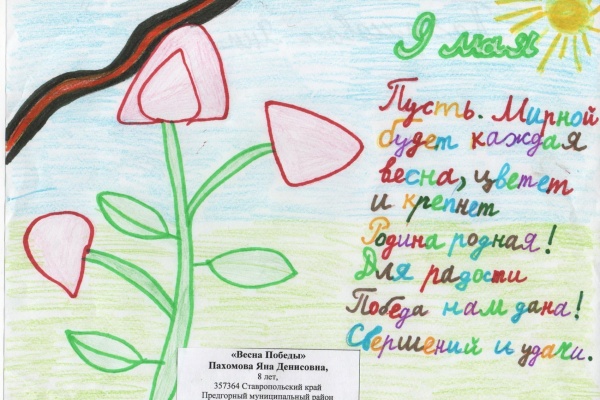 9 мая
Пусть. Мирной
будет каждая
весна, цветет
и крепнет
Родина родная!
Для радости
Победа нам дана!
Свершений и удачи.
«Весна Победы»
Пахомова Яна Денисовна,
8 лет,
357364 Ставропольский край
Предгорный муниципальный район